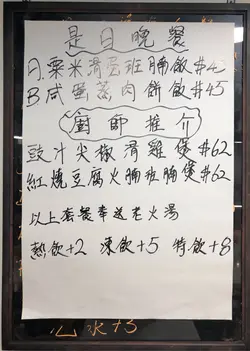 是日晚餐
A.粟米滑蛋班腩飯#45
B咸蛋蒸肉餅飯#45
廚師推介
豉汁尖椒滑雞煲#62
紅燒豆腐火腩班腩煲#62
以上套餐奉送老火湯
熱飲+2 凍飲+5 特飲+8
心水+5